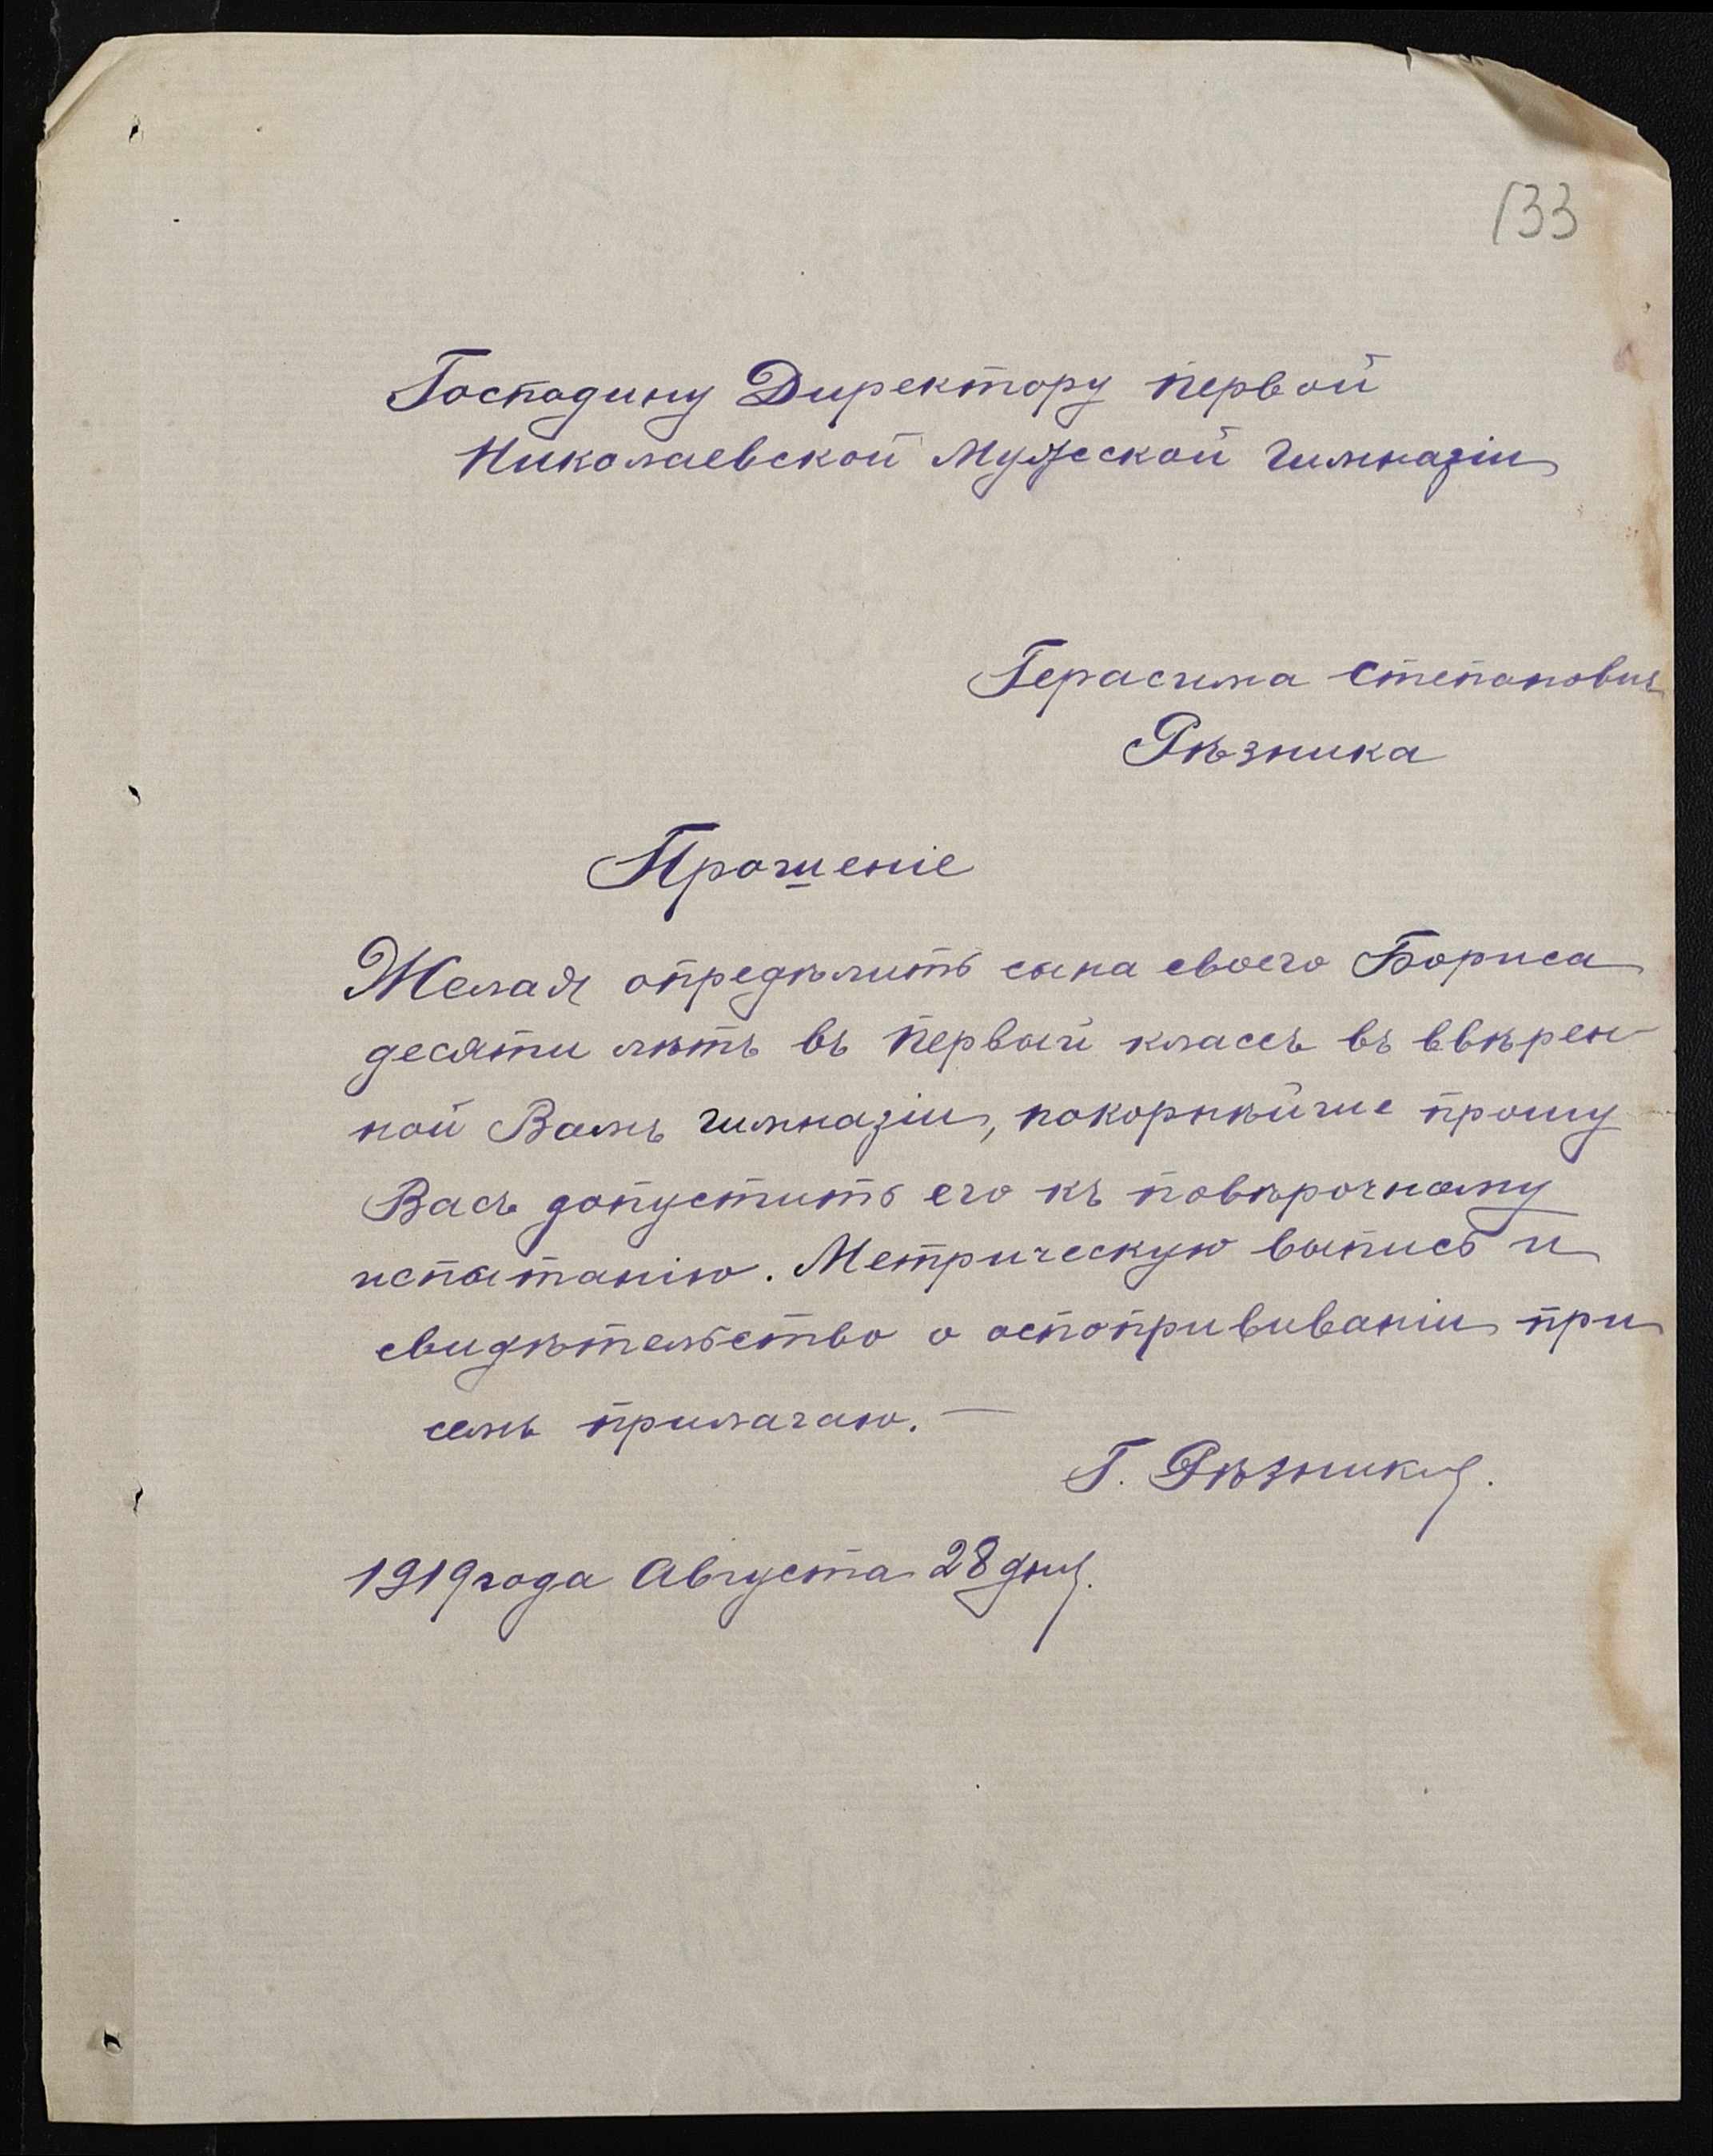 133
Господину Директору первой
Николаевской Мужеской гимназіи
Герасима Степанович
Рѣзника
Прошеніе
Желая опредѣлить сына своего Бориса
десяти лѣтъ въ первый классъ въ ввѣрен-
ной Вамъ гимназіи, покорнѣйше прошу
Васъ допустить его къ повѣрочному
испытанію. Метрическую выпись и
свидѣтельство о оспопрививаніи при
семъ прилагаю. —
Г. Рѣзникъ.
1919 года Августа 28 дня.